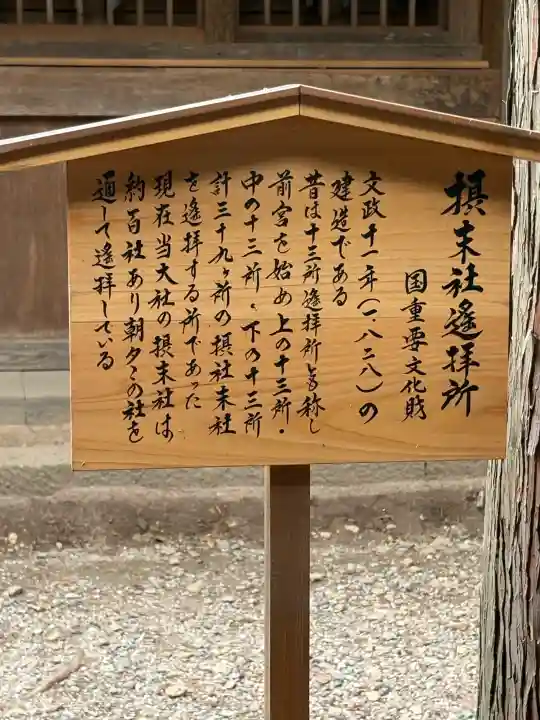 摂末社遙拝所
国重要文化財
文政十一年(一八二八)の
建造である
昔は十三所遙拝所とも称し
前宮を始め上の十三所・
中の十三所・下の十三所
計三十九ヶ所の摂社末社
を遙拝する所であった
現在当大社の摂末社は
約百社あり朝夕この社を
通して遙拝している